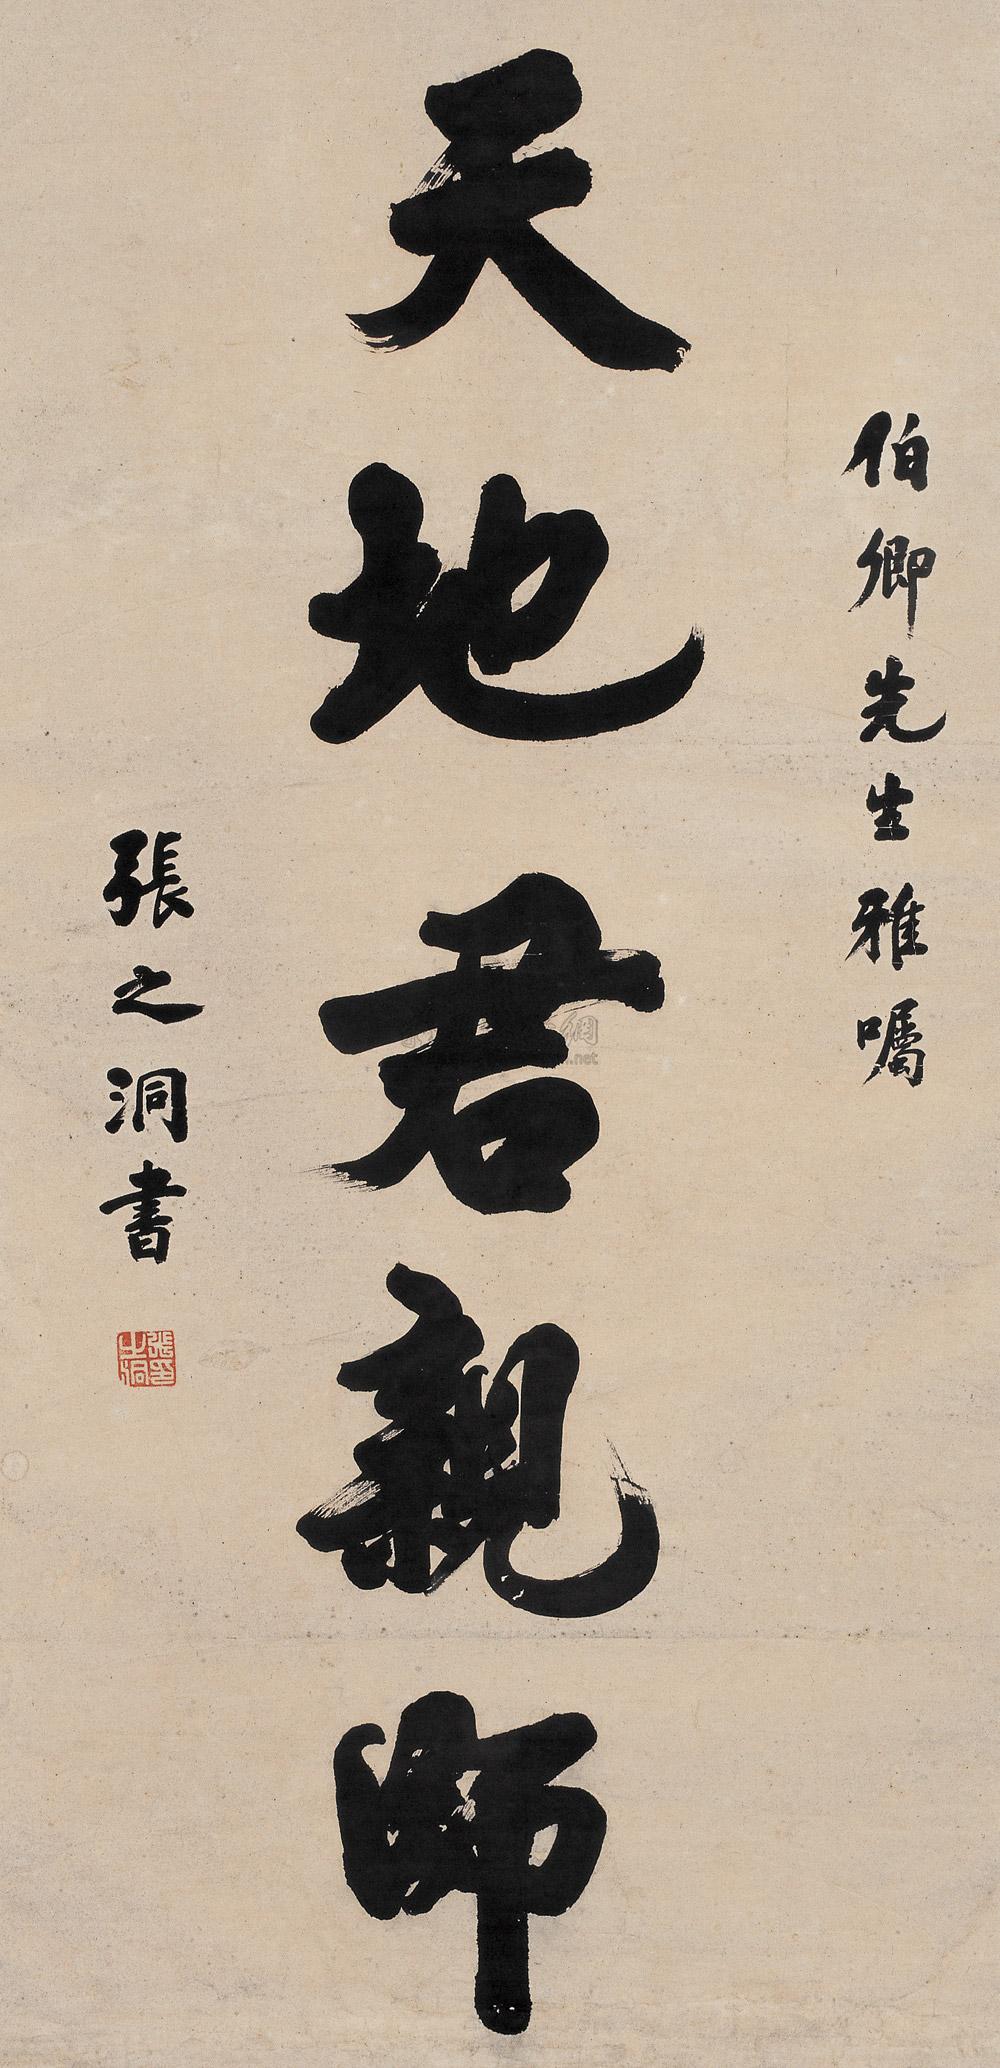 伯卿先生雅囑
天地君親師
張之洞書
張之洞印